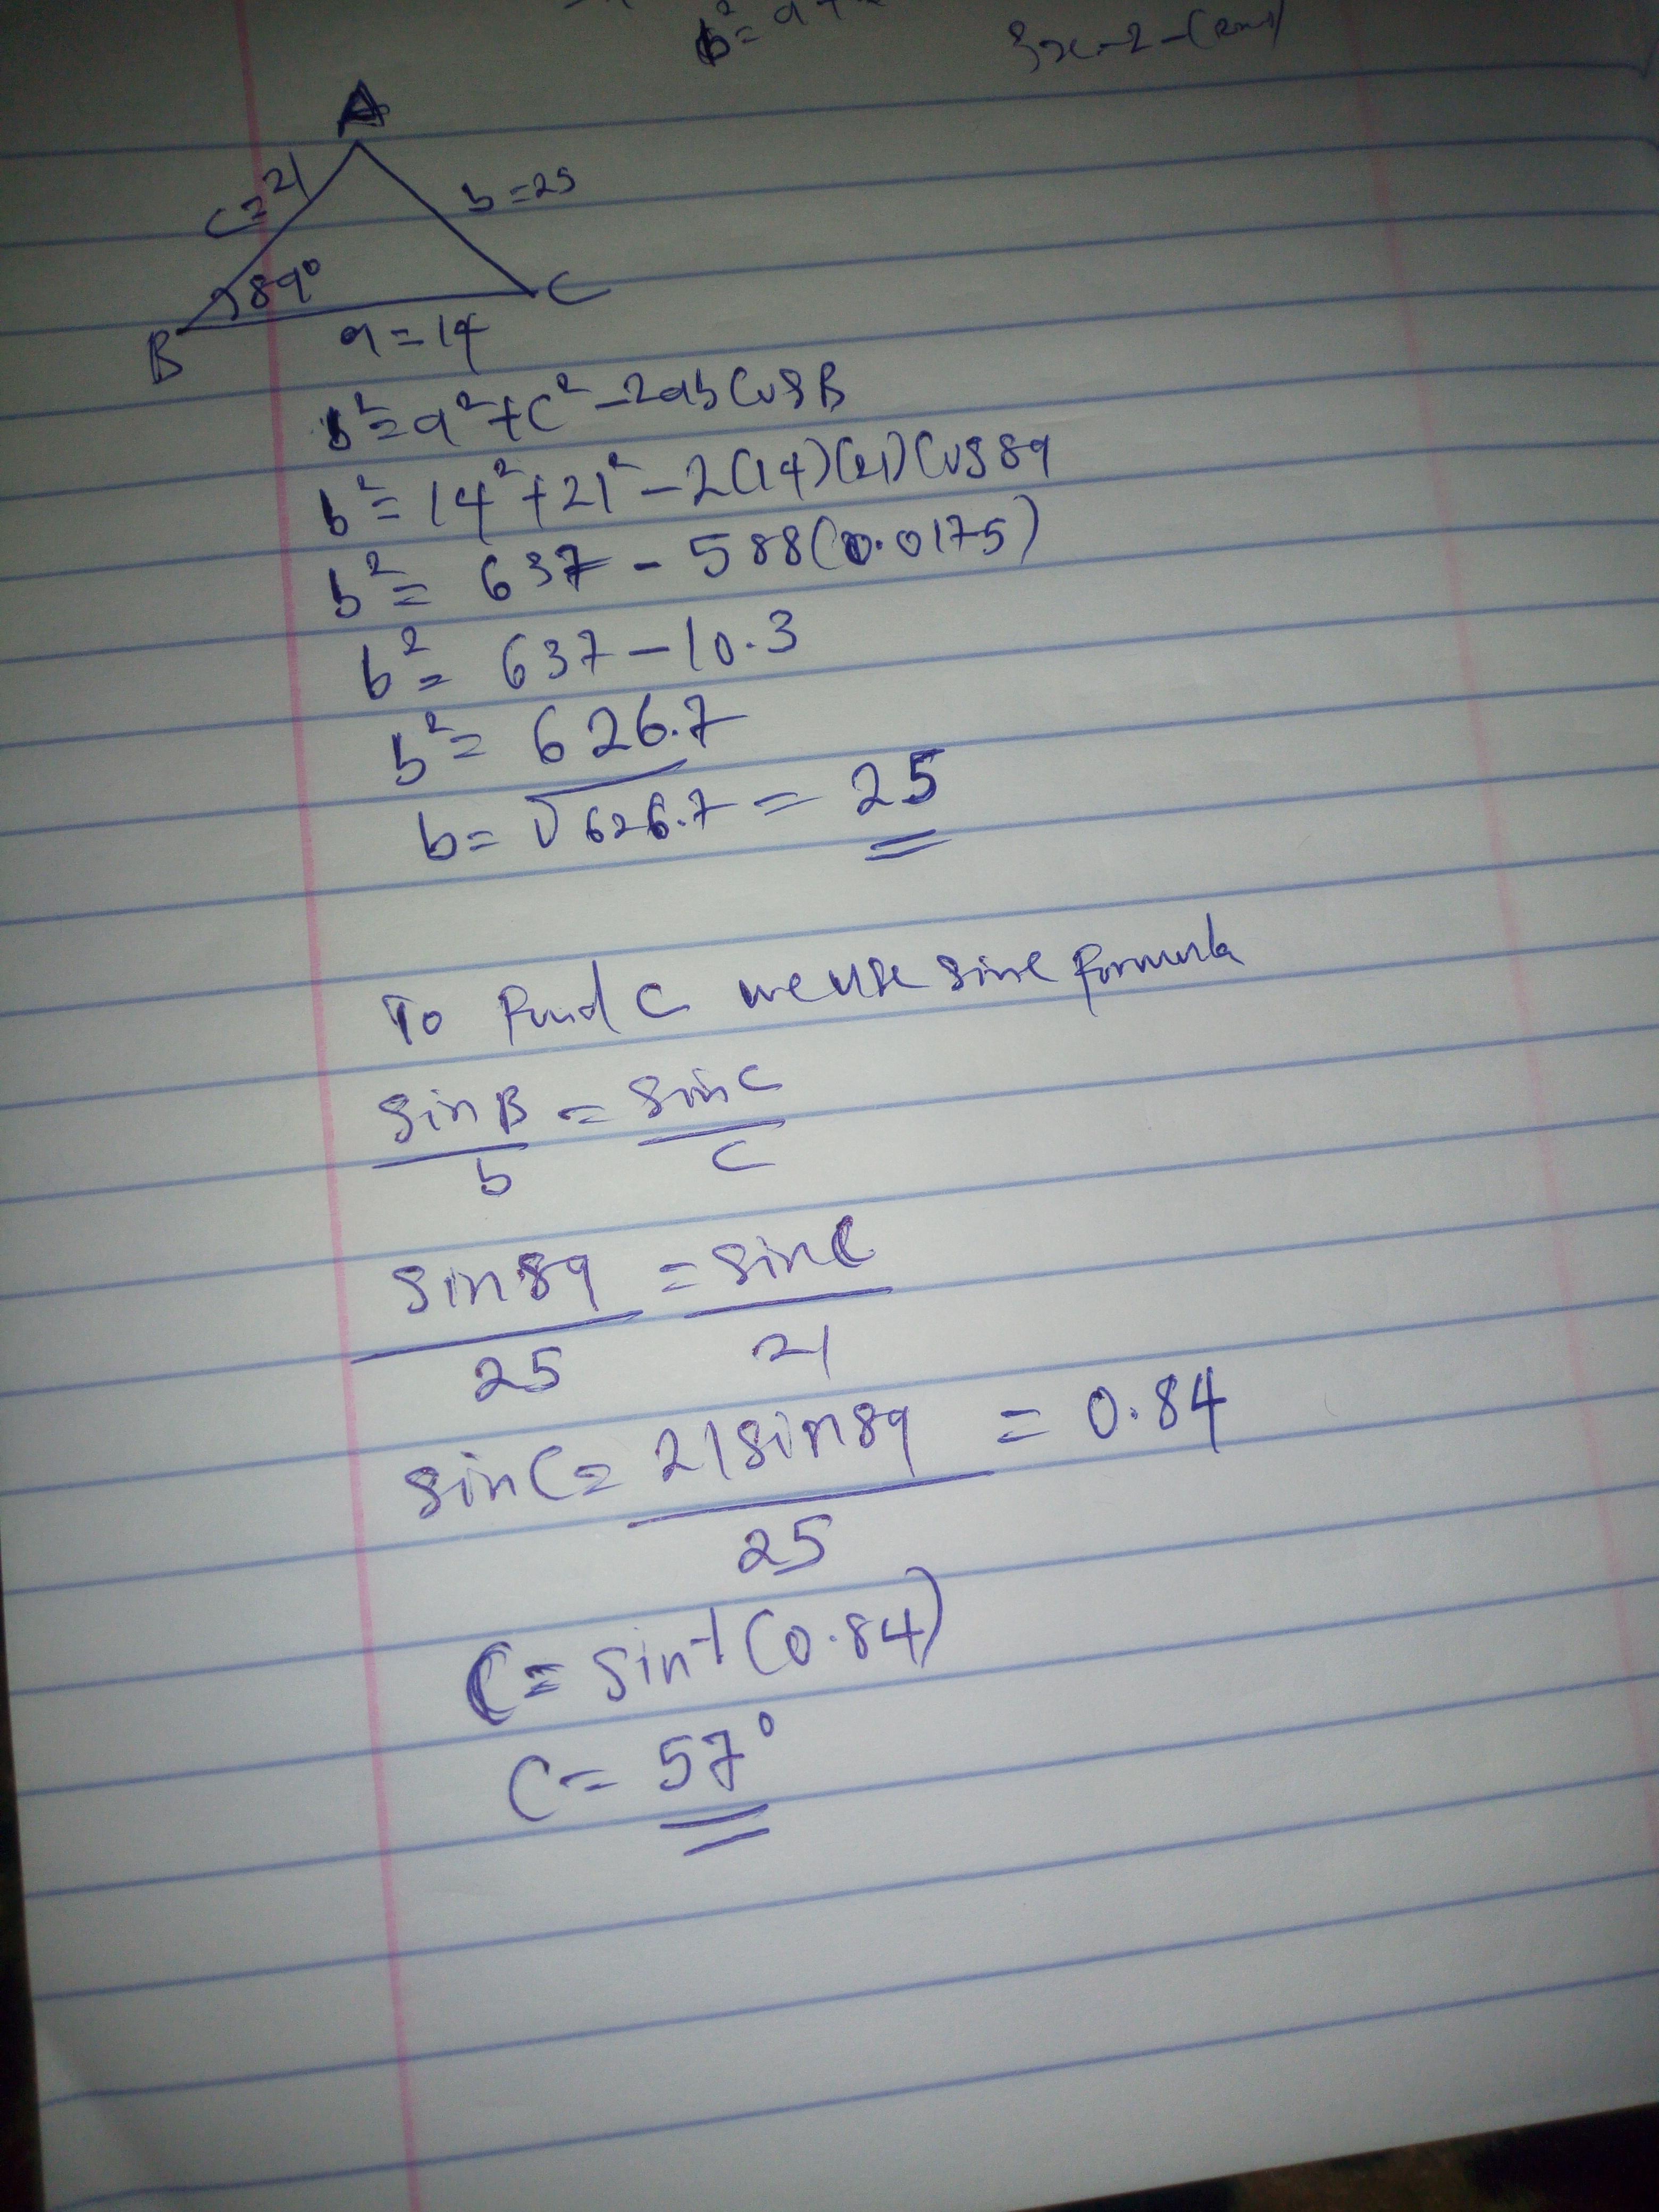 b² = a² +
3x-2-(
A
c=21
b=25
89°
B
C
a=14
b² = a² + c² - 2ab Cos B
b² = 14² + 21² - 2(14)(21) Cos 89
b² = 637 - 588(0.0175)
b² = 637 - 10.3
b² = 626.7
b = √626.7 = 25
To Find C we use sine formula
sin B / b = sin C / c
sin 89 / 25 = sin C / 21
sin C = 21 sin 89 / 25 = 0.84
C = sin⁻¹(0.84)
C = 57°